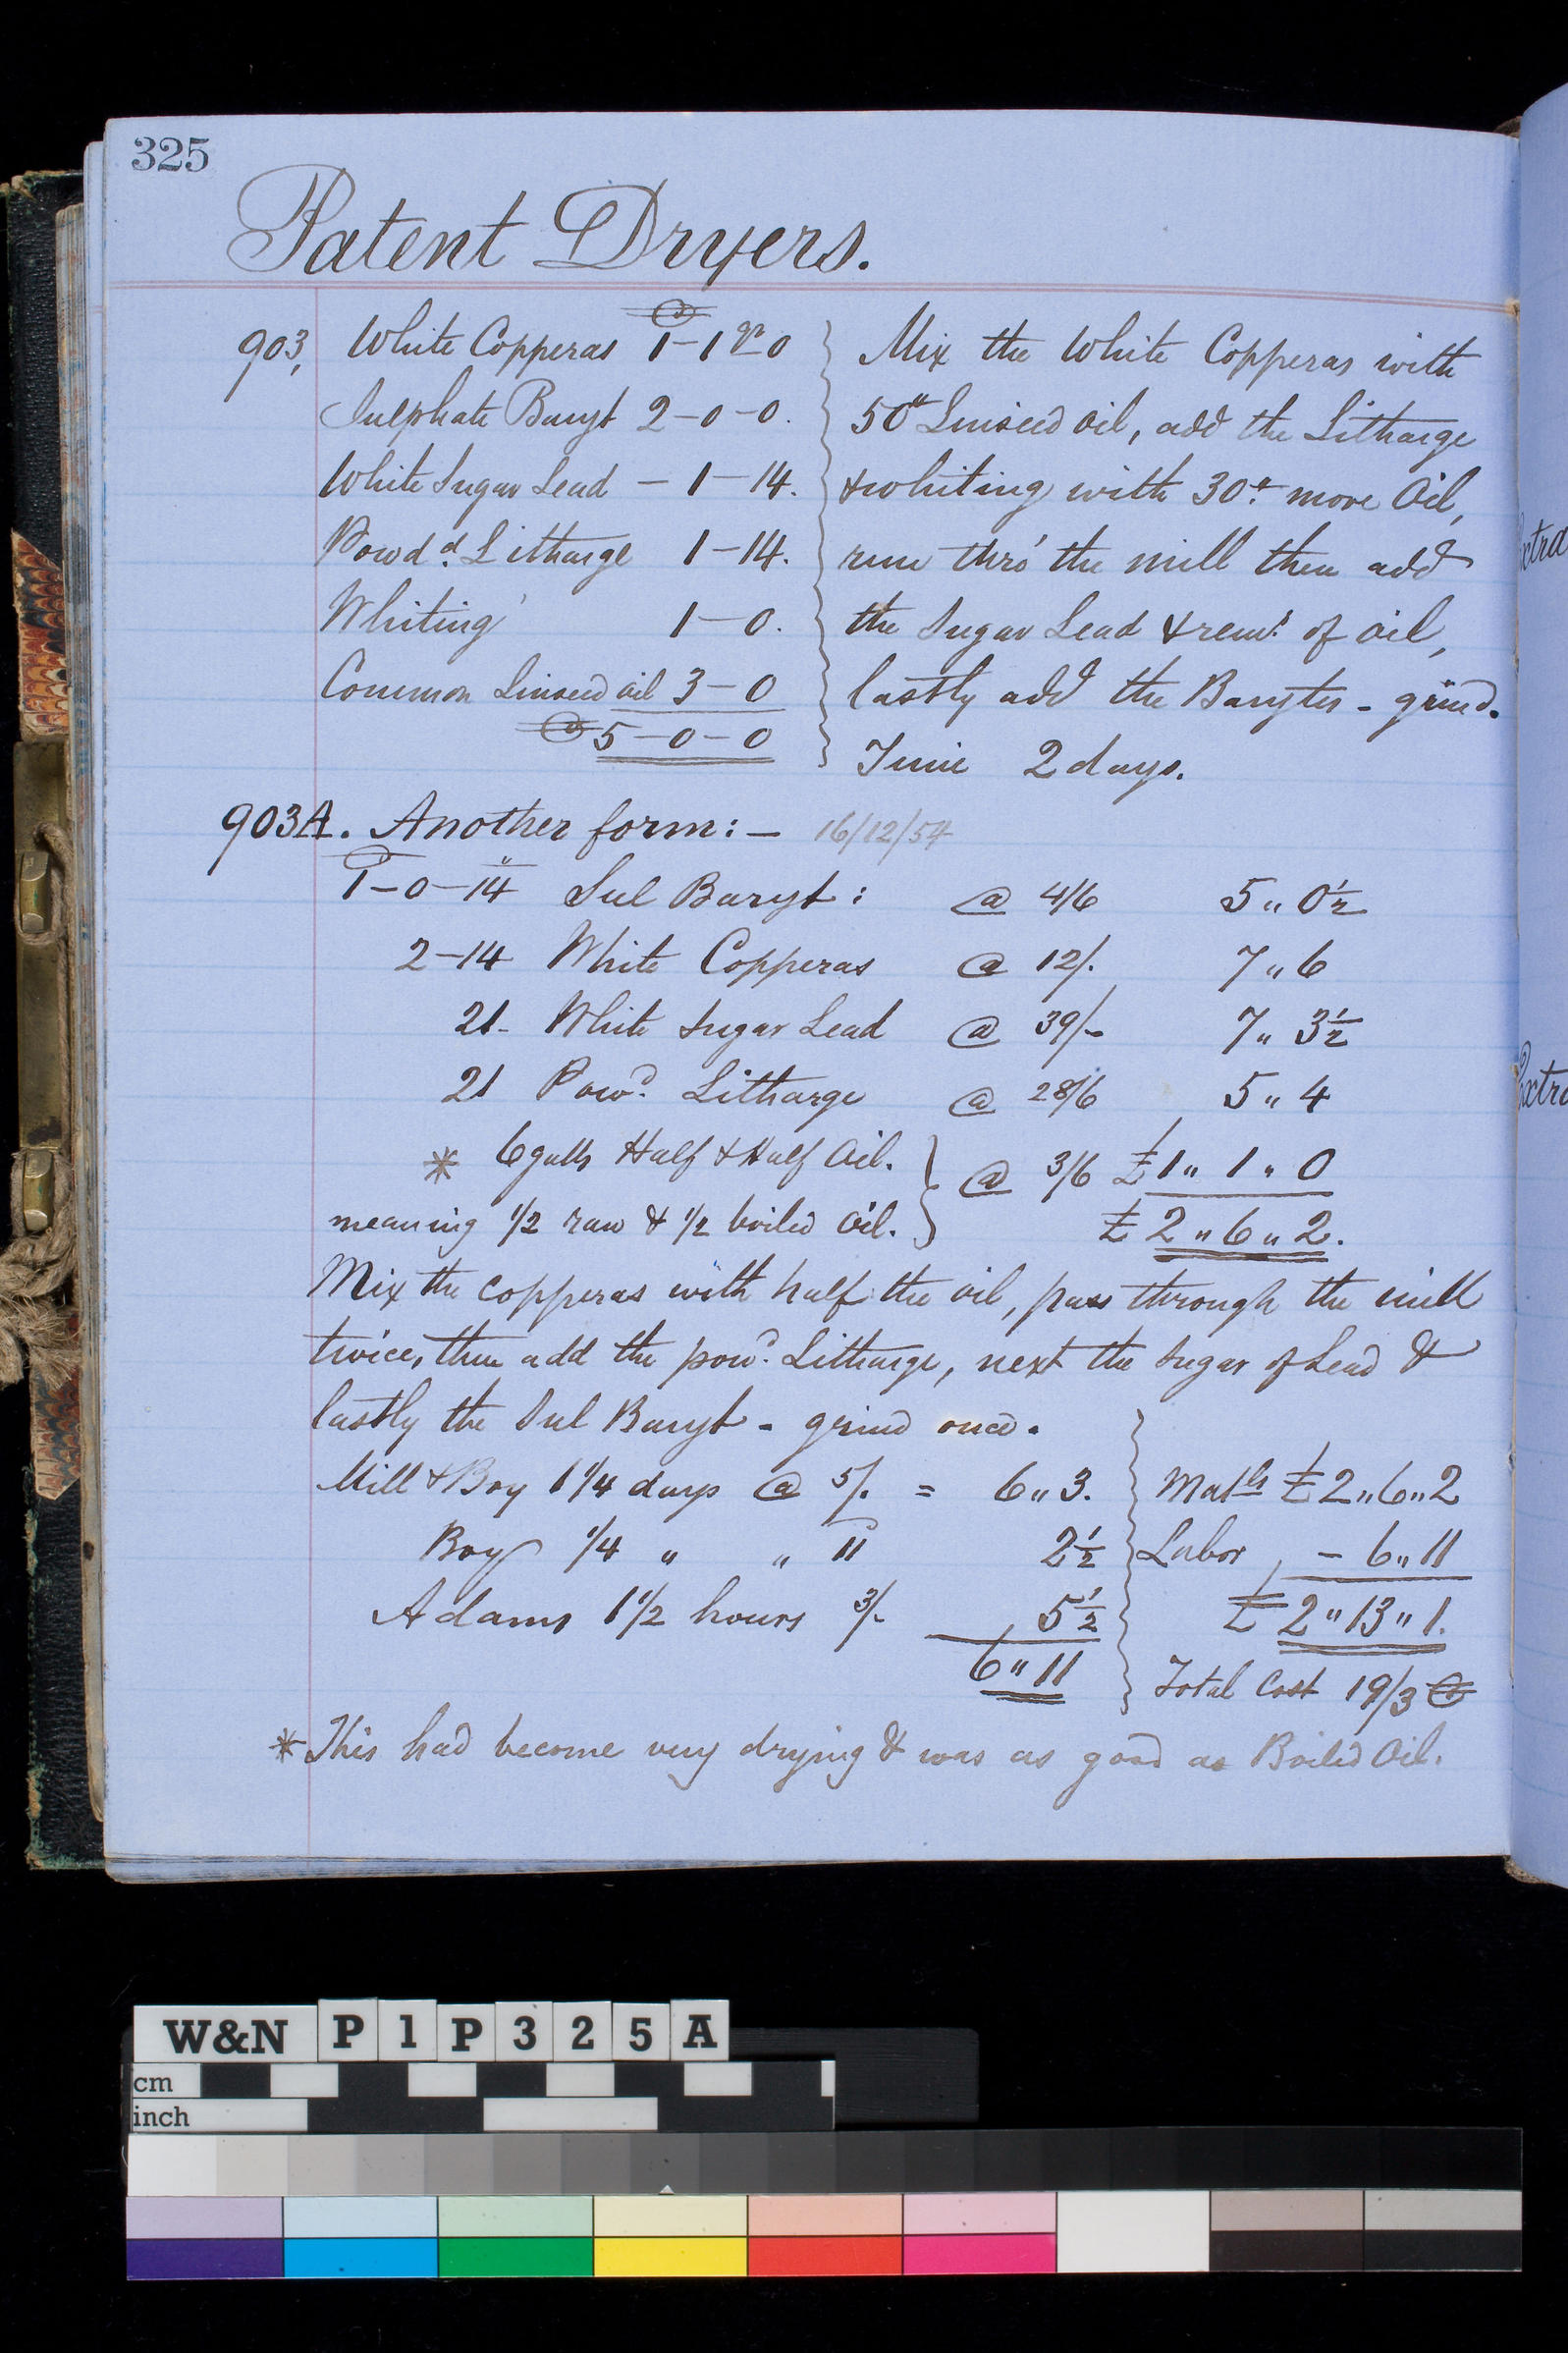 325
Patent Dryers.
903, White Copperas 1-1 qr 0
Sulphate Baryt 2-0-0.
White Sugar Lead - 1-14.
Powdd. Litharge 1-14.
Whiting 1-0.
Common Linseed oil 3-0
5-0-0
Mix the White Copperas with
50lb Linseed oil, add the Litharge
& whiting with 30lb more Oil,
run thro' the mill then add
the Sugar Lead & remr. of oil,
lastly add the Barytes - grind.
Time 2 days.
903A. Another form:- 16/12/54
1-0-14 Sul Baryt: @ 4/6 5"0½
2-14 White Copperas @ 12/. 7"6
21- White Sugar Lead @ 39/- 7"3½
21 Powd. Litharge @ 28/6 5"4
* 6 galls Half & Half Oil. } @ 3/6 £1"1"0
meaning 1/2 raw & 1/2 boiled Oil. } £2"6"2.
Mix the copperas with half the oil, pass through the mill
twice, then add the powd. Litharge, next the Sugar of Lead &
lastly the Sul Baryt - grind once.
Mill & Boy 1 1/4 days @ 5/. = 6"3.
Boy 1/4 " " 11 2½
Adams 1 1/2 hours 3/- 5½
6"11
Matls £2"6"2
Labor - 6"11
£2"13"1.
Total Cost 19/3
*This had become very drying & was as good as Boiled Oil.
W&N P1P325A
cm
inch